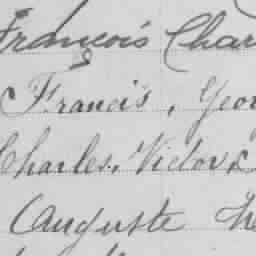 François Char
Francis, Geor
Charles, Victor &
Auguste